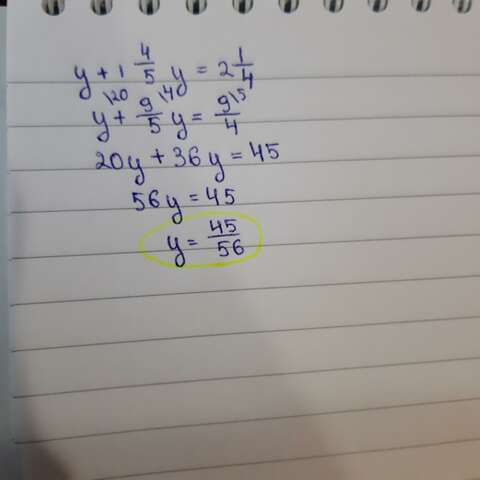 y + 1 4/5 y = 2 1/4
y\20 + 9/5\4 y = 9/4\5
20y + 36y = 45
56y = 45
y = 45/56